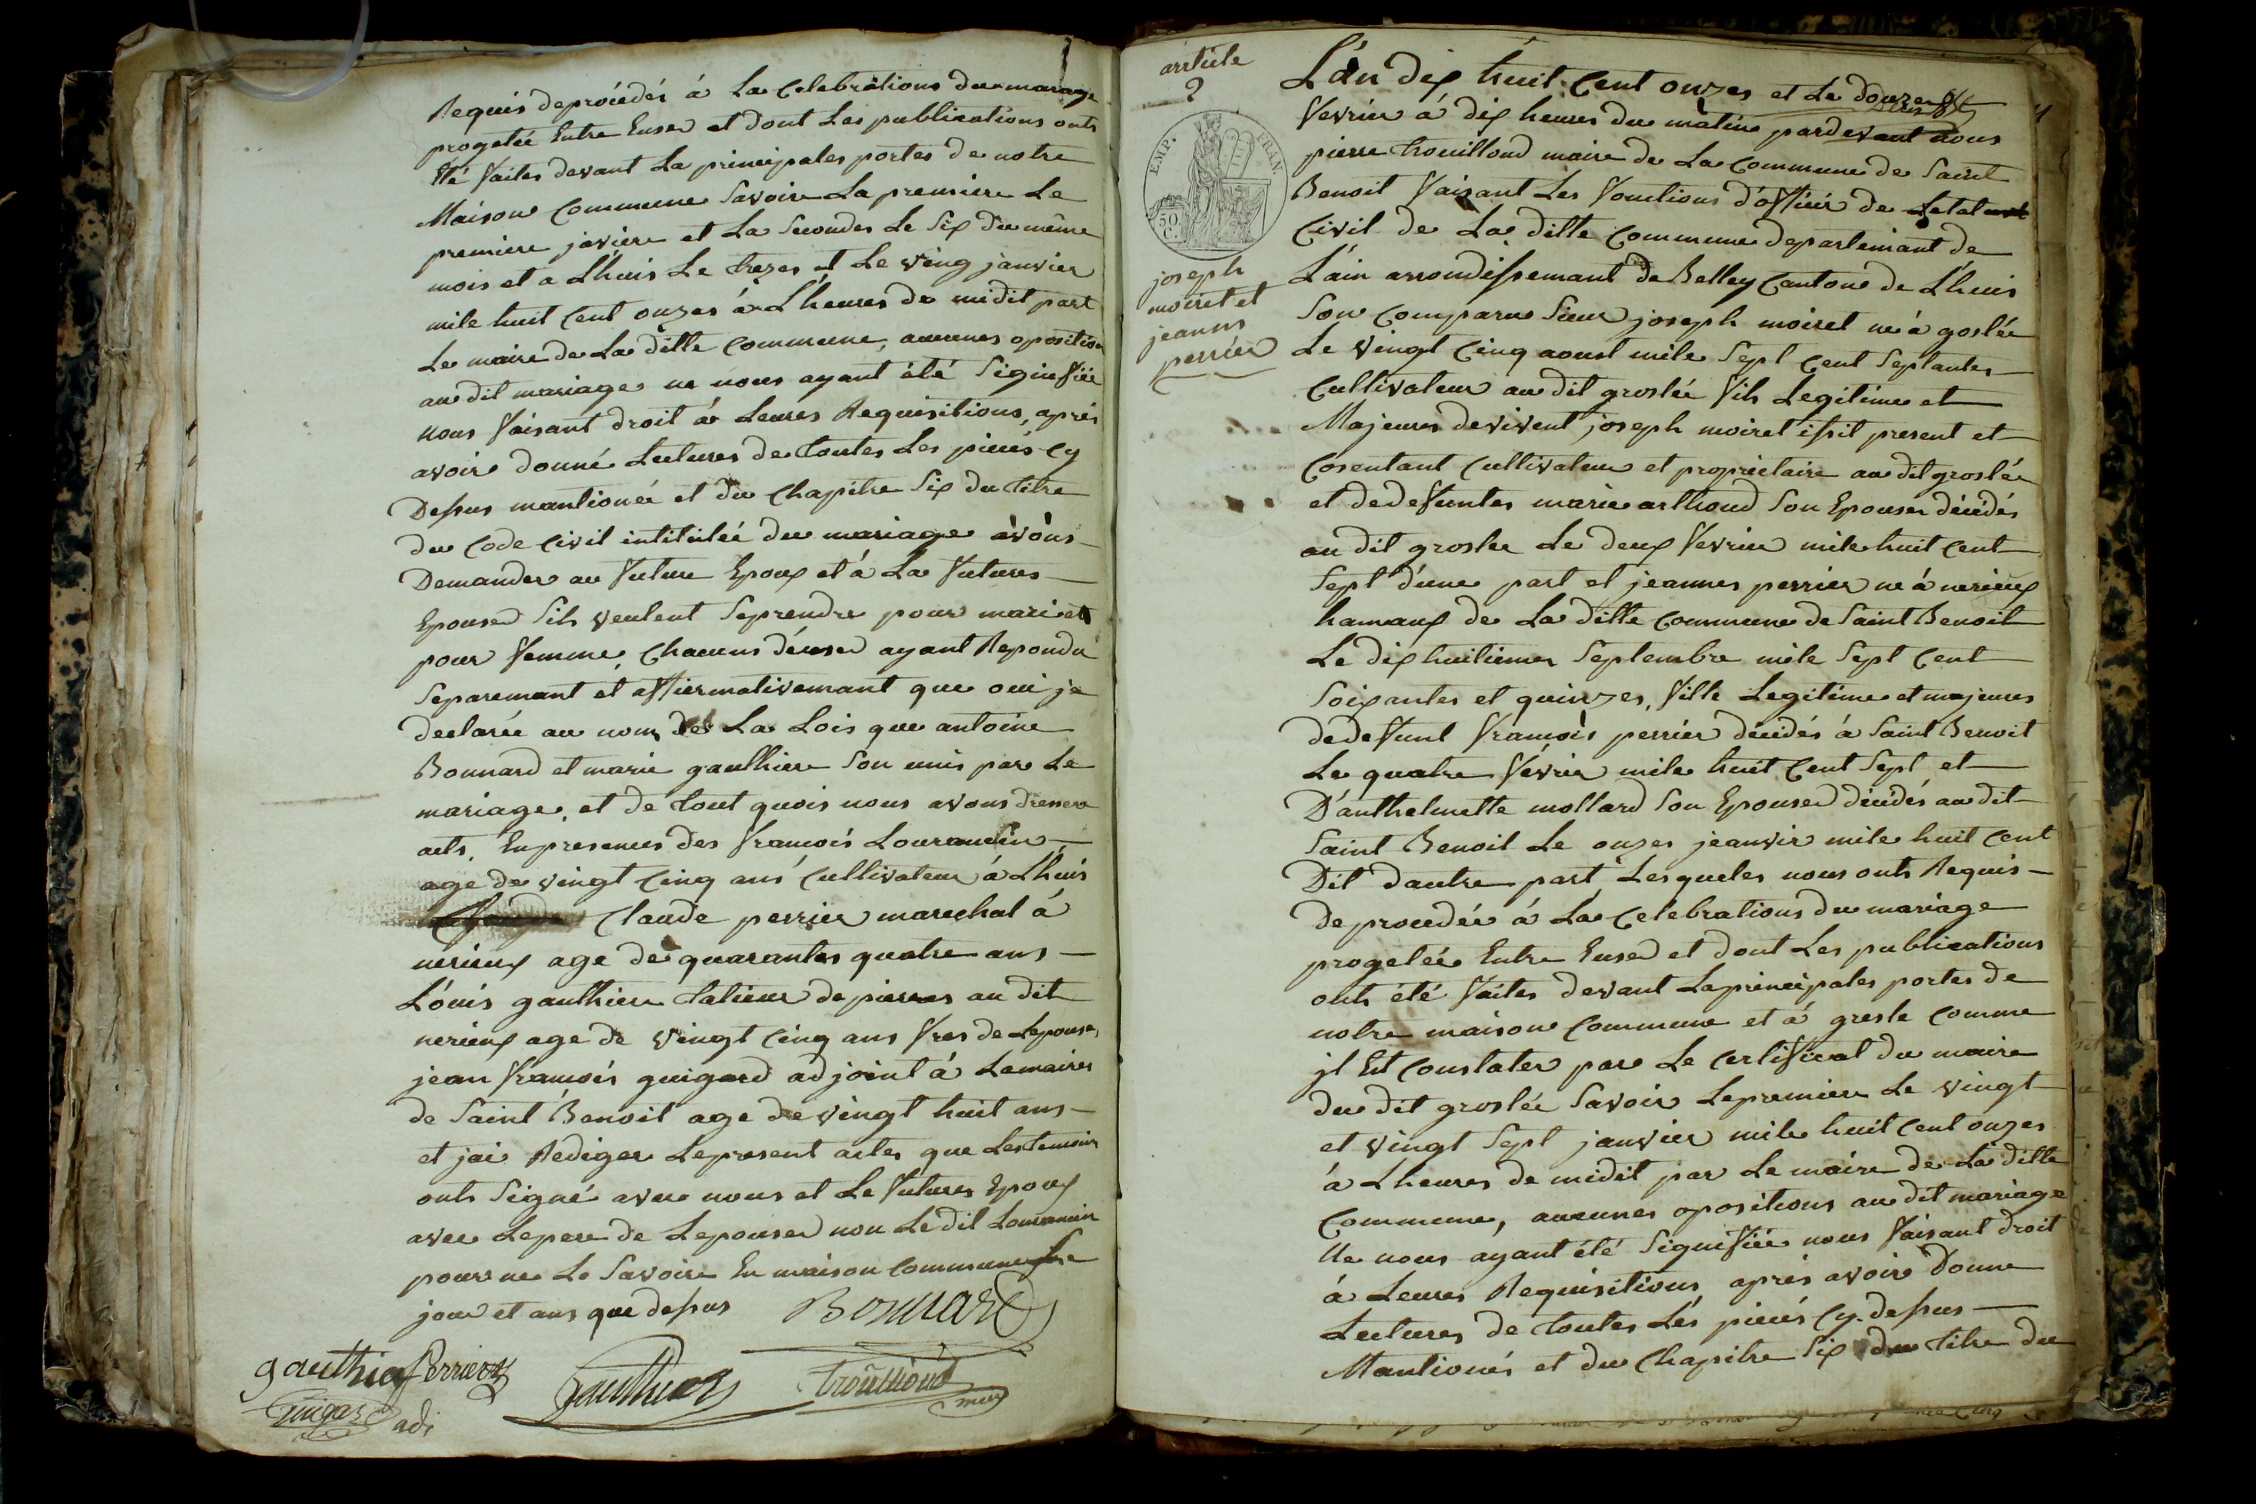 Requis deproicédés à La Celebrations du mariage
progetée Entre Euser et dont Les publications onts
Été faites devant La principales portes de notre
Maison Commune Savoire La premiere Le
premiere javiere et La Secondes Le Six du même
mois et a Lhuis Le trezes et Le ving janvier
mile huit Cent onzes à Lheures de midit part
Le maire de La ditte Commune, aucunes oposition
au dit mariage ne nous ayant été Signifiée
nous faisant droit à Leures Requisitions, après
avoir donné Lectures de toutes Les pieces Cy
Dessus mantionée et du Chapitre Six du titre
du Code Civil intitulée du mariage avons
Demander au future Epoux et à La futures
Epouser Sils veulent Seprendre pour mari et
pour femme, Chacuns déuser ayant Repondu
Separemant et affiermativemant que oui je
declarée au nom des La Lois que antoine
Bonnard et marie gauthier Son unis par Le
mariage, et de tout quois nous avons dressere
acts. Enpresences des francois Lourancin
age de vingt Cinq ans Cultivateur à Lhuis
Claude perrier marechal à
nerieux age de quarantes quatre ans
Louis gauthier talieur de pierres au dit
nerieux age de vingt Cinq ans fres de Lepouse
jean francois guigard adjoint à Lamaires
de Saint Benoit age de vingt huit ans
et jai Rediger Lepresent actes que Lestemoins
onts Signé avec nous et Le futures Epoux
avec Lepere de Lepouser non Le dit Lourancin
pour ne Le Savoire En maison Commune Le
jour et ans que dessus Bonnard
gauthier perrier
Gauthier trouilloud
guigard adj maire
article
2
EMP. FRAN.
50 C.
joseph
moiret et
jeannes
perrier
L'án dix huit Cent onzes et Le douzes
fevrier à dix heures du matine pardevant nous
pierre trouilloud maire de La Commune de Saint
Benoit faisant Les fonctions d'officié de Letat
Civil de La ditte Commune departemant de
L'ain arrondissemant de Belley Cantone de Lhuis
Son Comparus Sieur joseph moiret ne à goslée
Le vingt Cinq aoust mile Sept Cent Septantes
Cultivateur au dit groslée fils Legitime et
Majeures devivent joseph moiret issit present et
Cosentant Cultivateur et propriétaire au dit groslée
et dedefuntes marie arthoud Son Epouser décédés
au dit groslee Le deux fevrier mile huit Cent
Sept d'une part et jeannes perrier ne à nerieux
hamaux de La ditte Commune de Saint Benoit
Le dix huitiemes Septembre mile Sept Cent
Soixantes et quinzes, fille Legitime et majeures
dedefunt francois perrier décédés à Saint Benoit
Le quatre févrie mile huit Cent Sept et
D'anthelmette mollard Son Epouser décédés au dit
Saint Benoit Le onzes jeanvir mile huit Cent
Dit dautre part Lesqueles nous onts Requis
De procedée à La Celebrations du mariage
progetée Entre Euser et dont Les publications
onts été faites devant Laprincipales portes de
notre maison Commune et à gresle Comme
jl Est Constater par Le Certificat du maire
du dit groslée Savoir Lepremiere Le vingt
et vingt Sept janvier mile huit Cent onzes
à Lheures de midit par Le maire de La ditte
Commune, aucunes opositions au dit mariage
Ne nous ayant été Signifiée nous faisant droit
à Leures Requisitions, après avoir Donne
Lectures de toutes Lés pieces Cy. dessus
Mantionés et du Chapitre Six du titre du